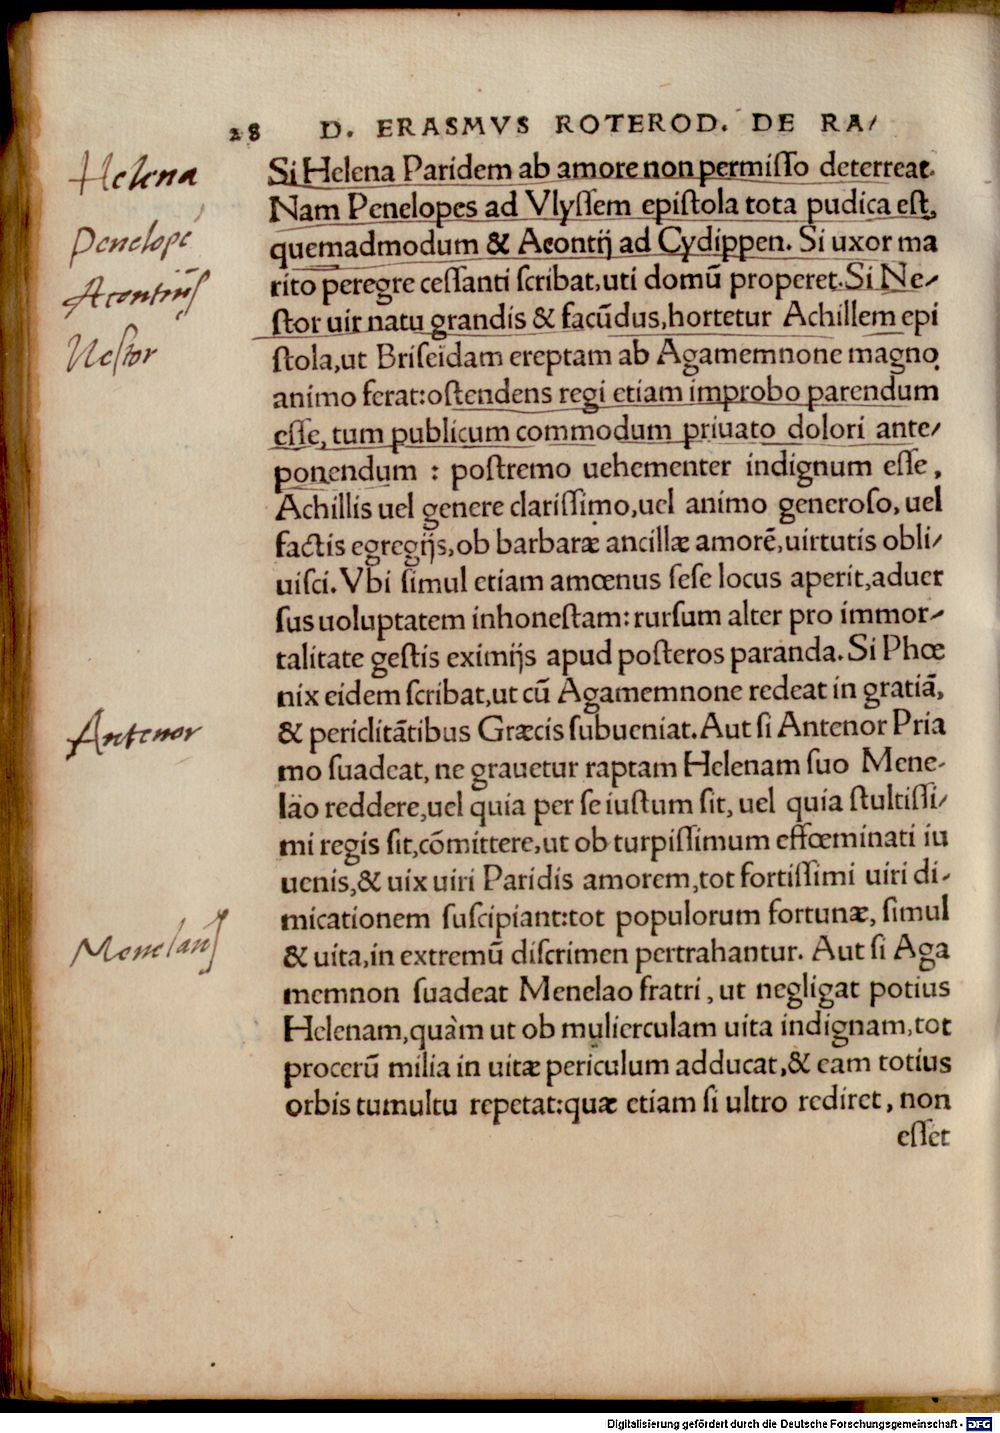 28 D. ERASMVS ROTEROD. DE RA/
Helena
Si Helena Paridem ab amore non permisso deterreat.
Nam Penelopes ad Vlyssem epistola tota pudica est,
Penelope
quemadmodum & Acontij ad Cydippen. Si uxor ma
Acontius
rito peregre cessanti scribat, uti domũ properet. Si Ne/
stor uir natu grandis & facũdus, hortetur Achillem epi
Nestor
stola, ut Briseidam ereptam ab Agamemnone magno
animo ferat: ostendens regi etiam improbo parendum
esse, tum publicum commodum priuato dolori ante/
ponendum : postremo uehementer indignum esse,
Achillis uel genere clarissimo, uel animo generoso, uel
factis egregijs, ob barbaræ ancillæ amorẽ, uirtutis obli/
uisci. Vbi simul etiam amœnus sese locus aperit, aduer
sus uoluptatem inhonestam: rursum alter pro immor/
talitate gestis eximijs apud posteros paranda. Si Phœ
nix eidem scribat, ut cũ Agamemnone redeat in gratiã,
Antenor
& periclitãtibus Græcis subueniat. Aut si Antenor Pria
mo suadeat, ne grauetur raptam Helenam suo Mene-
läo reddere, uel quia per se iustum sit, uel quia stultissi/
mi regis sit, cõmittere, ut ob turpissimum effœminati iu
uenis, & uix uiri Paridis amorem, tot fortissimi uiri di-
micationem suscipiant: tot populorum fortunæ, simul
Menelaus
& uita, in extremũ discrimen pertrahantur. Aut si Aga
memnon suadeat Menelao fratri, ut negligat potius
Helenam, quàm ut ob mulierculam uita indignam, tot
procerũ milia in uitæ periculum adducat, & eam totius
orbis tumultu repetat: quæ etiam si ultro rediret, non
esset
Digitalisierung gefördert durch die Deutsche Forschungsgemeinschaft - DFG